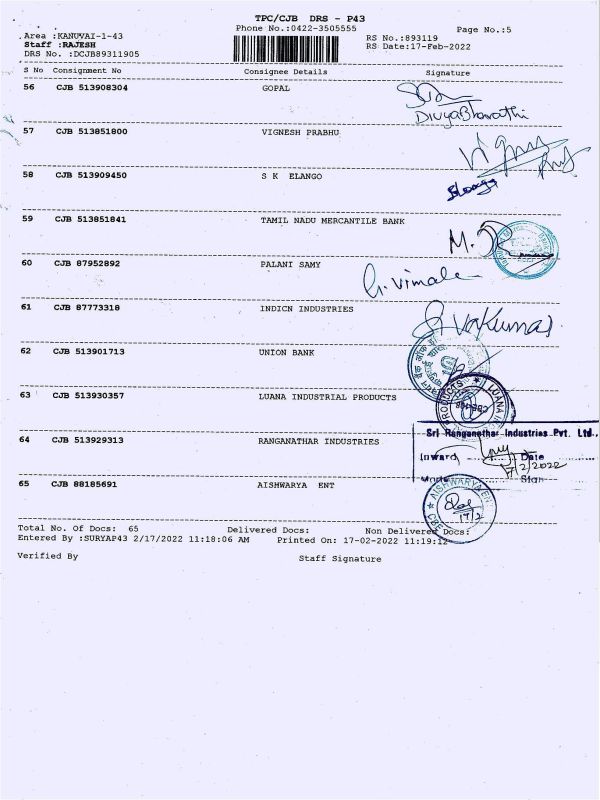 TPC/CJB DRS - P43
Phone No.:0422-3505555 Page No.:5
Area :KANUVAI-1-43 RS No.:893119
Staff :RAJESH RS Date:17-Feb-2022
DRS No. :DCJB89311905
S No Consignment No Consignee Details Signature
56 CJB 513908304 GOPAL
DivyaBharathi
57 CJB 513851800 VIGNESH PRABHU
58 CJB 513909450 S K ELANGO
Elango
59 CJB 513851841 TAMIL NADU MERCANTILE BANK
60 CJB 87952892 PALANI SAMY
G. Vimala
61 CJB 87773318 INDICN INDUSTRIES
Sivakumar
62 CJB 513901713 UNION BANK
63 CJB 513930357 LUANA INDUSTRIAL PRODUCTS
LUANA PRODUCTS
Sri Ranganathar Industries Pvt. Ltd.,
64 CJB 513929313 RANGANATHAR INDUSTRIES
Inward Date
17/2/2022
Sign
65 CJB 88185691 AISHWARYA ENT
AISHWARYA EN
17/2
Total No. Of Docs: 65 Delivered Docs: Non Delivered Docs:
Entered By :SURYAP43 2/17/2022 11:18:06 AM Printed On: 17-02-2022 11:19:12
Verified By Staff Signature